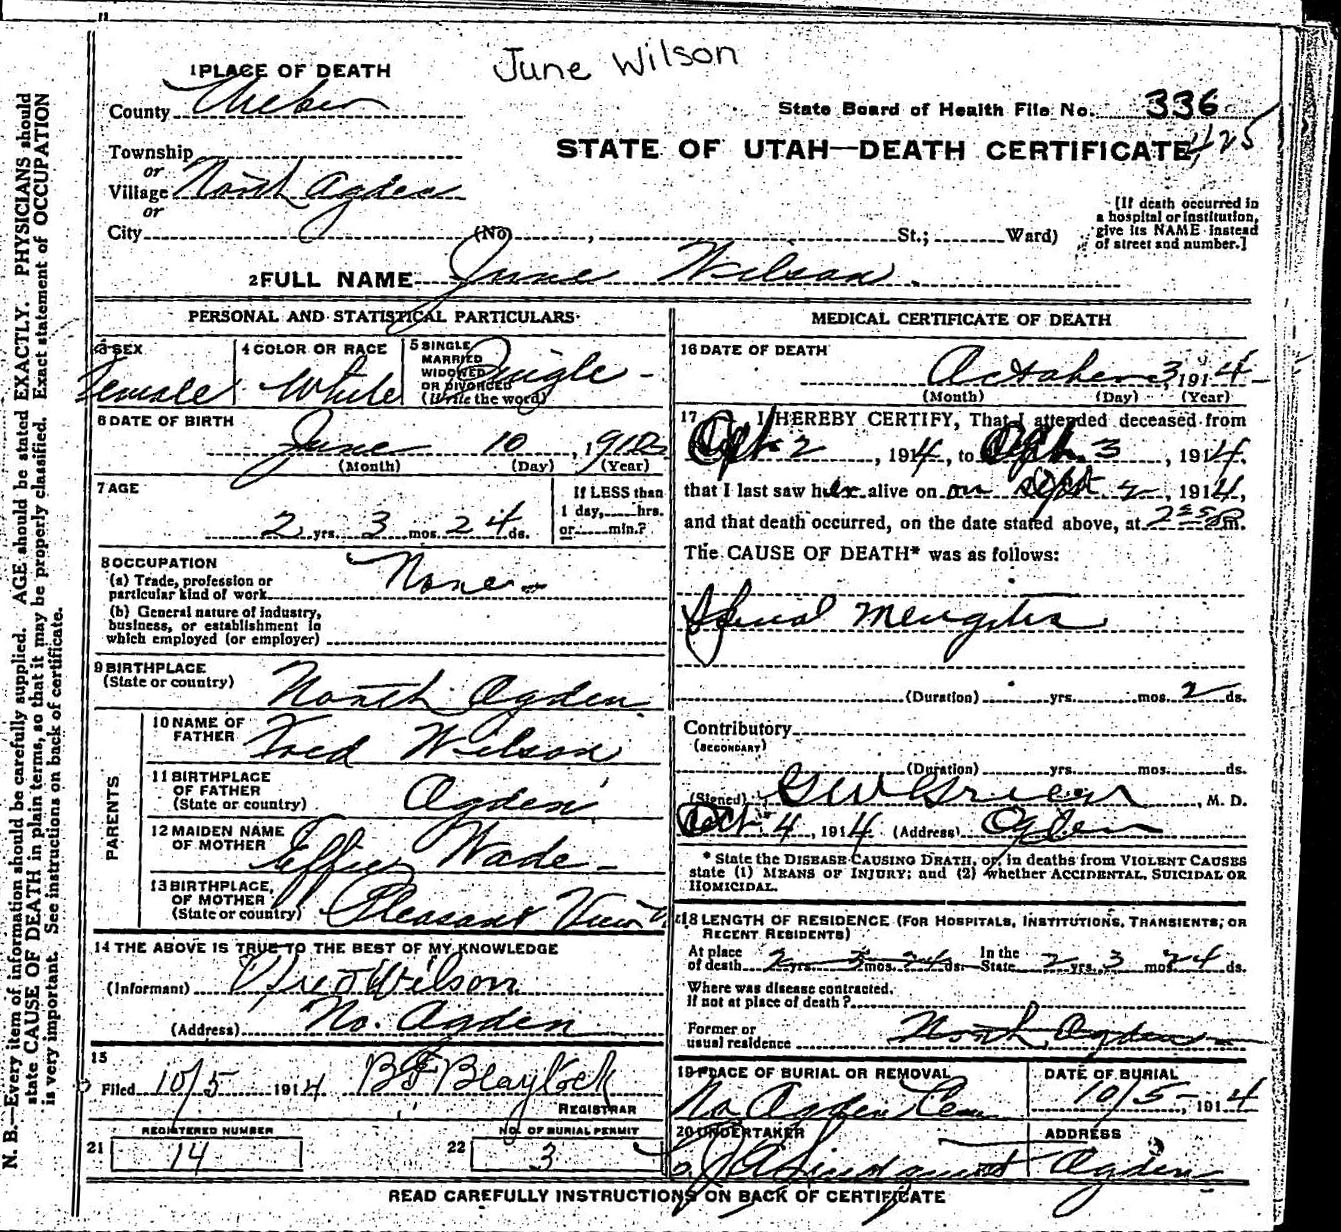 June Wilson
1 PLACE OF DEATH
County Weber
State Board of Health File No. 336
425
Township
STATE OF UTAH—DEATH CERTIFICATE
or
Village North Ogden
or
City (No. , St.; Ward)
[If death occurred in
a hospital or institution,
give its NAME instead
of street and number.]
2 FULL NAME June Wilson
PERSONAL AND STATISTICAL PARTICULARS
3 SEX
Female
4 COLOR OR RACE
White
5 SINGLE
MARRIED
WIDOWED
OR DIVORCED
(Write the word)
Single
6 DATE OF BIRTH
June 10, 1912
(Month) (Day) (Year)
7 AGE
2 yrs. 3 mos. 24 ds.
If LESS than
1 day, hrs.
or min.?
8 OCCUPATION
(a) Trade, profession or
particular kind of work None
(b) General nature of industry,
business, or establishment in
which employed (or employer)
9 BIRTHPLACE
(State or country) North Ogden
PARENTS
10 NAME OF
FATHER Fred Wilson
11 BIRTHPLACE
OF FATHER
(State or country) Ogden
12 MAIDEN NAME
OF MOTHER Effie Wade
13 BIRTHPLACE,
OF MOTHER
(State or country) Pleasant View
14 THE ABOVE IS TRUE TO THE BEST OF MY KNOWLEDGE
(Informant) Fred Wilson
(Address) No. Ogden
15
Filed 10/5 1914 BF Blaylock
REGISTRAR
REGISTERED NUMBER
21 14
NO. OF BURIAL PERMIT
22 3
MEDICAL CERTIFICATE OF DEATH
16 DATE OF DEATH
October 3, 1914
(Month) (Day) (Year)
17 I HEREBY CERTIFY, That I attended deceased from
2, 1914, to 3, 1914,
that I last saw her alive on on Sept 2, 1914,
and that death occurred, on the date stated above, at m.
The CAUSE OF DEATH* was as follows:
Spinal Mengites
(Duration) yrs. mos. 2 ds.
Contributory
(SECONDARY)
(Duration) yrs. mos. ds.
(Signed) , M. D.
Oct. 4, 1914 (Address) Ogden
* State the DISEASE CAUSING DEATH, or, in deaths from VIOLENT CAUSES
state (1) MEANS OF INJURY; and (2) whether ACCIDENTAL, SUICIDAL OR
HOMICIDAL.
18 LENGTH OF RESIDENCE (FOR HOSPITALS, INSTITUTIONS, TRANSIENTS, OR
RECENT RESIDENTS)
At place
of death 2 yrs. 3 mos. 24 ds. In the
State 2 yrs. 3 mos. 24 ds.
Where was disease contracted,
if not at place of death?
Former or
usual residence North Ogden
19 PLACE OF BURIAL OR REMOVAL
No. Ogden Cem
DATE OF BURIAL
10/5, 1914
20 UNDERTAKER
Lindquist
ADDRESS
Ogden
READ CAREFULLY INSTRUCTIONS ON BACK OF CERTIFICATE
N. B.—Every item of information should be carefully supplied. AGE should be stated EXACTLY. PHYSICIANS should
state CAUSE OF DEATH in plain terms, so that it may be properly classified. Exact statement of OCCUPATION
is very important. See instructions on back of certificate.